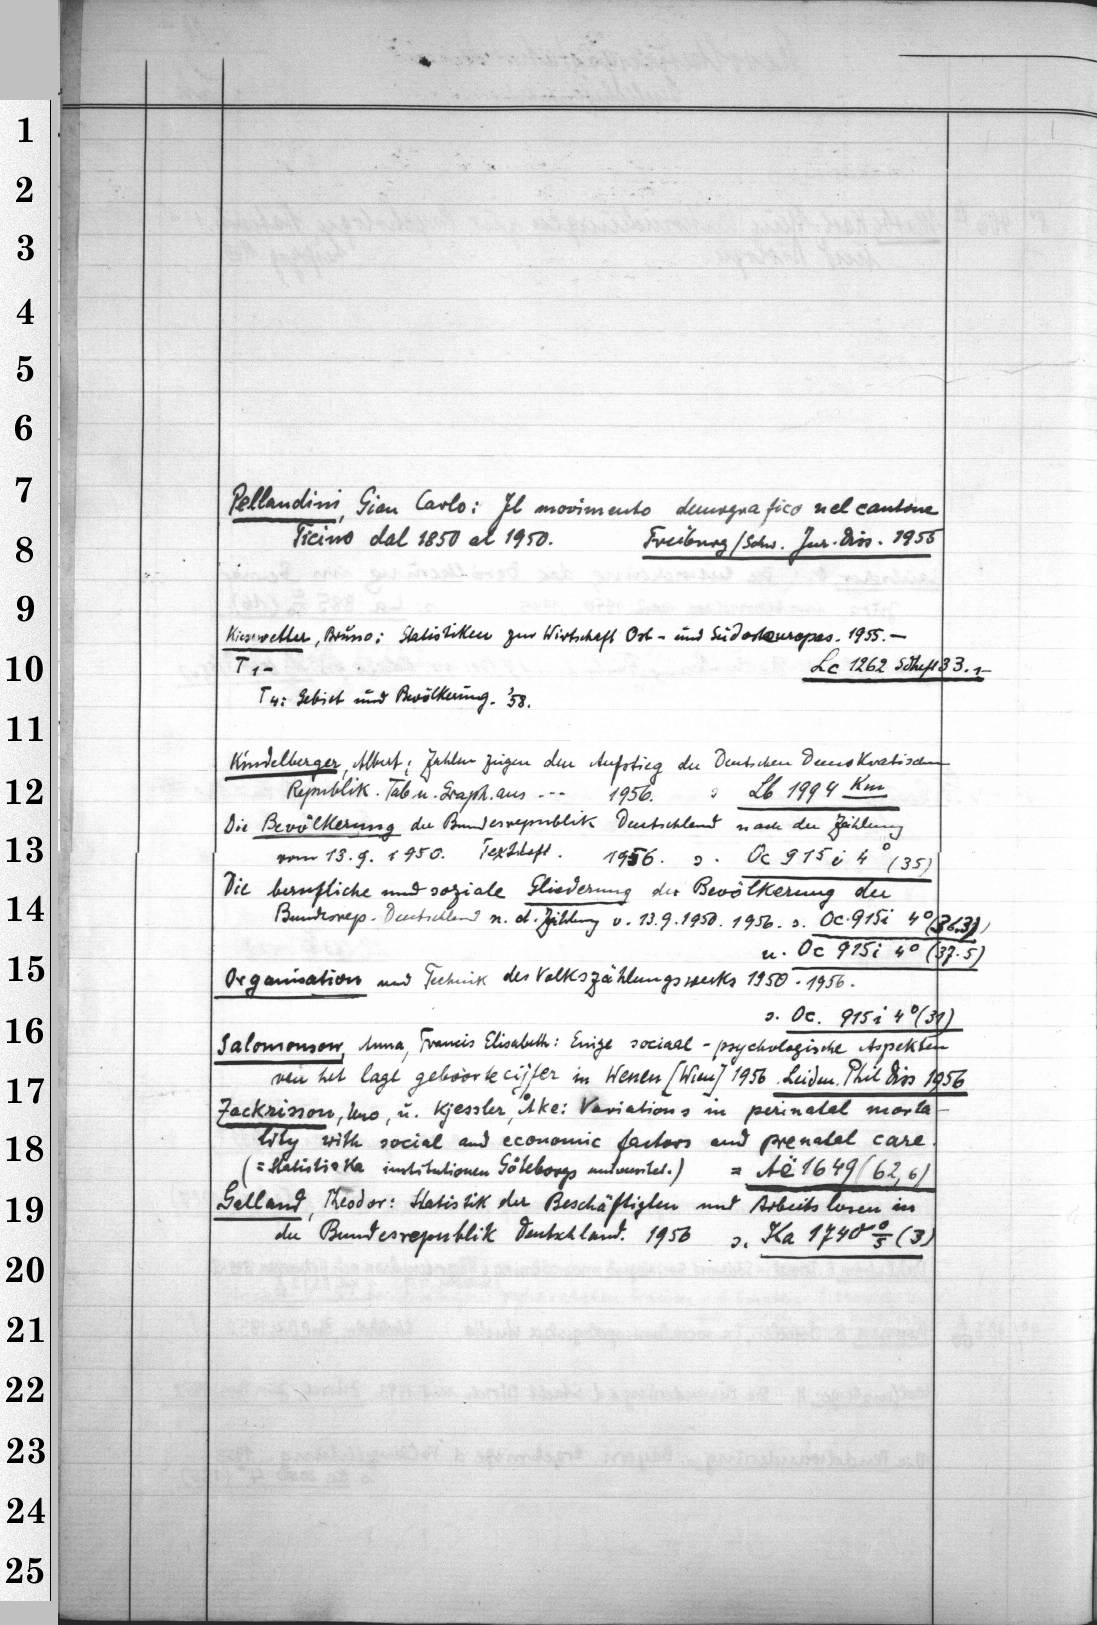 1
2
3
4
5
6
7
8
9
10
11
12
13
14
15
16
17
18
19
20
21
22
23
24
25
Pellandini, Gian Carlo: Il movimento demografico nel cantone
Ticino dal 1850 al 1950. Freiburg/Schw. Jur. Diss. 1956
Kiesewetter, Bruno: Statistiken zur Wirtschaft Ost- und Südosteuropas. 1955.—
T 1- Lc 1262 33.1-
T 4: Gebiet und Bevölkerung. '58.
Kindelberger, Albert: Zahlen zeigen den Aufstieg der Deutschen Demokratischen
Republik. Tab. u. Graph. aus --- 1956. s Lb 1994 Km
Die Bevölkerung der Bundesrepublik Deutschland nach der Zählung
vom 13.9.1950. Textheft. 1956. s. Oc 915 i 4° (35)
Die berufliche und soziale Gliederung der Bevölkerung der
Bundesrep. Deutschland n. d. Zählung v. 13.9.1950. 1956. s. Oc. 915i 4° (36.3)
u. Oc 915i 4° (37.5)
Organisation und Technik des Volkszählungswerks 1950. 1956.
s. Oc. 915 i 4° (31)
Salomonson, Anna, Francis Elisabeth: Enige sociaal-psychologische Aspekten
van het lage geboortecijfer in Wenen [Wien] 1956 Leiden. Phil Diss 1956
Zackrisson, Uno, u. Kjessler, Åke: Variations in perinatal morta-
lity with social and economic factors and prenatal care.
(= Statistiska institutionen Göteborgs universitet.) = Aë 1649 (62,6)
Gelland, Theodor: Statistik der Beschäftigten und Arbeitslosen in
der Bundesrepublik Deutschland. 1956 s. Ka 1740 (3)